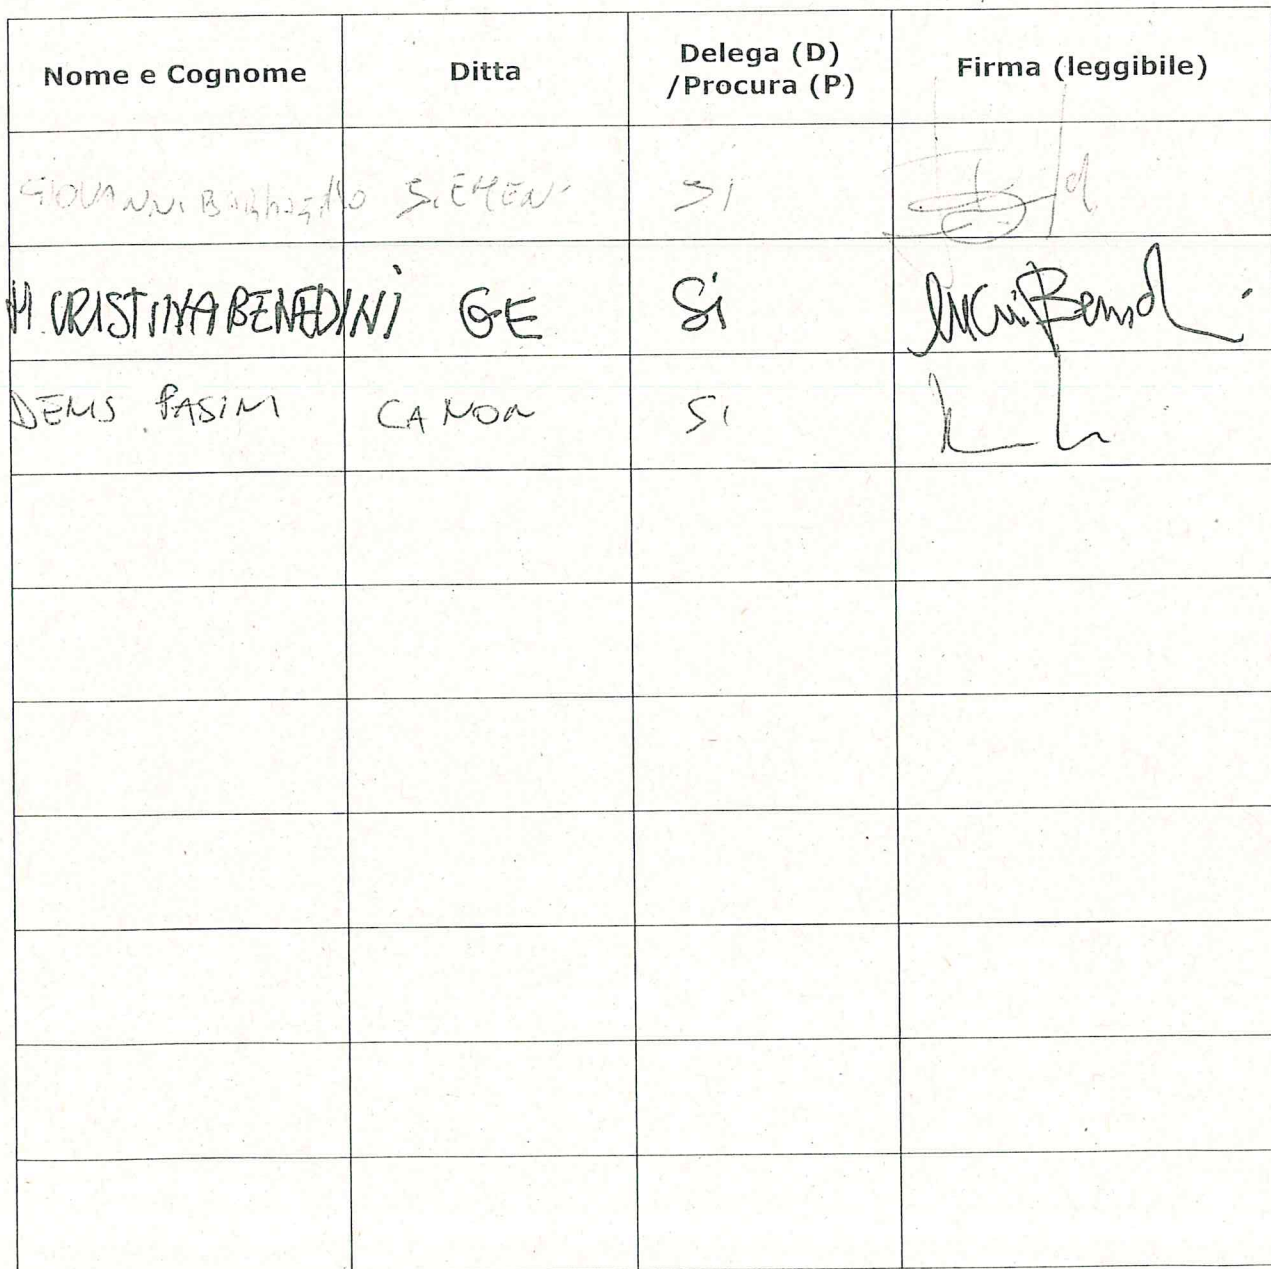 Nome e Cognome Ditta Delega (D) /Procura (P) Firma (leggibile)
GIOVANNI SIEMENS SI
M. CRISTINA BENEDINI GE Si
DENIS PASINI CANON SI